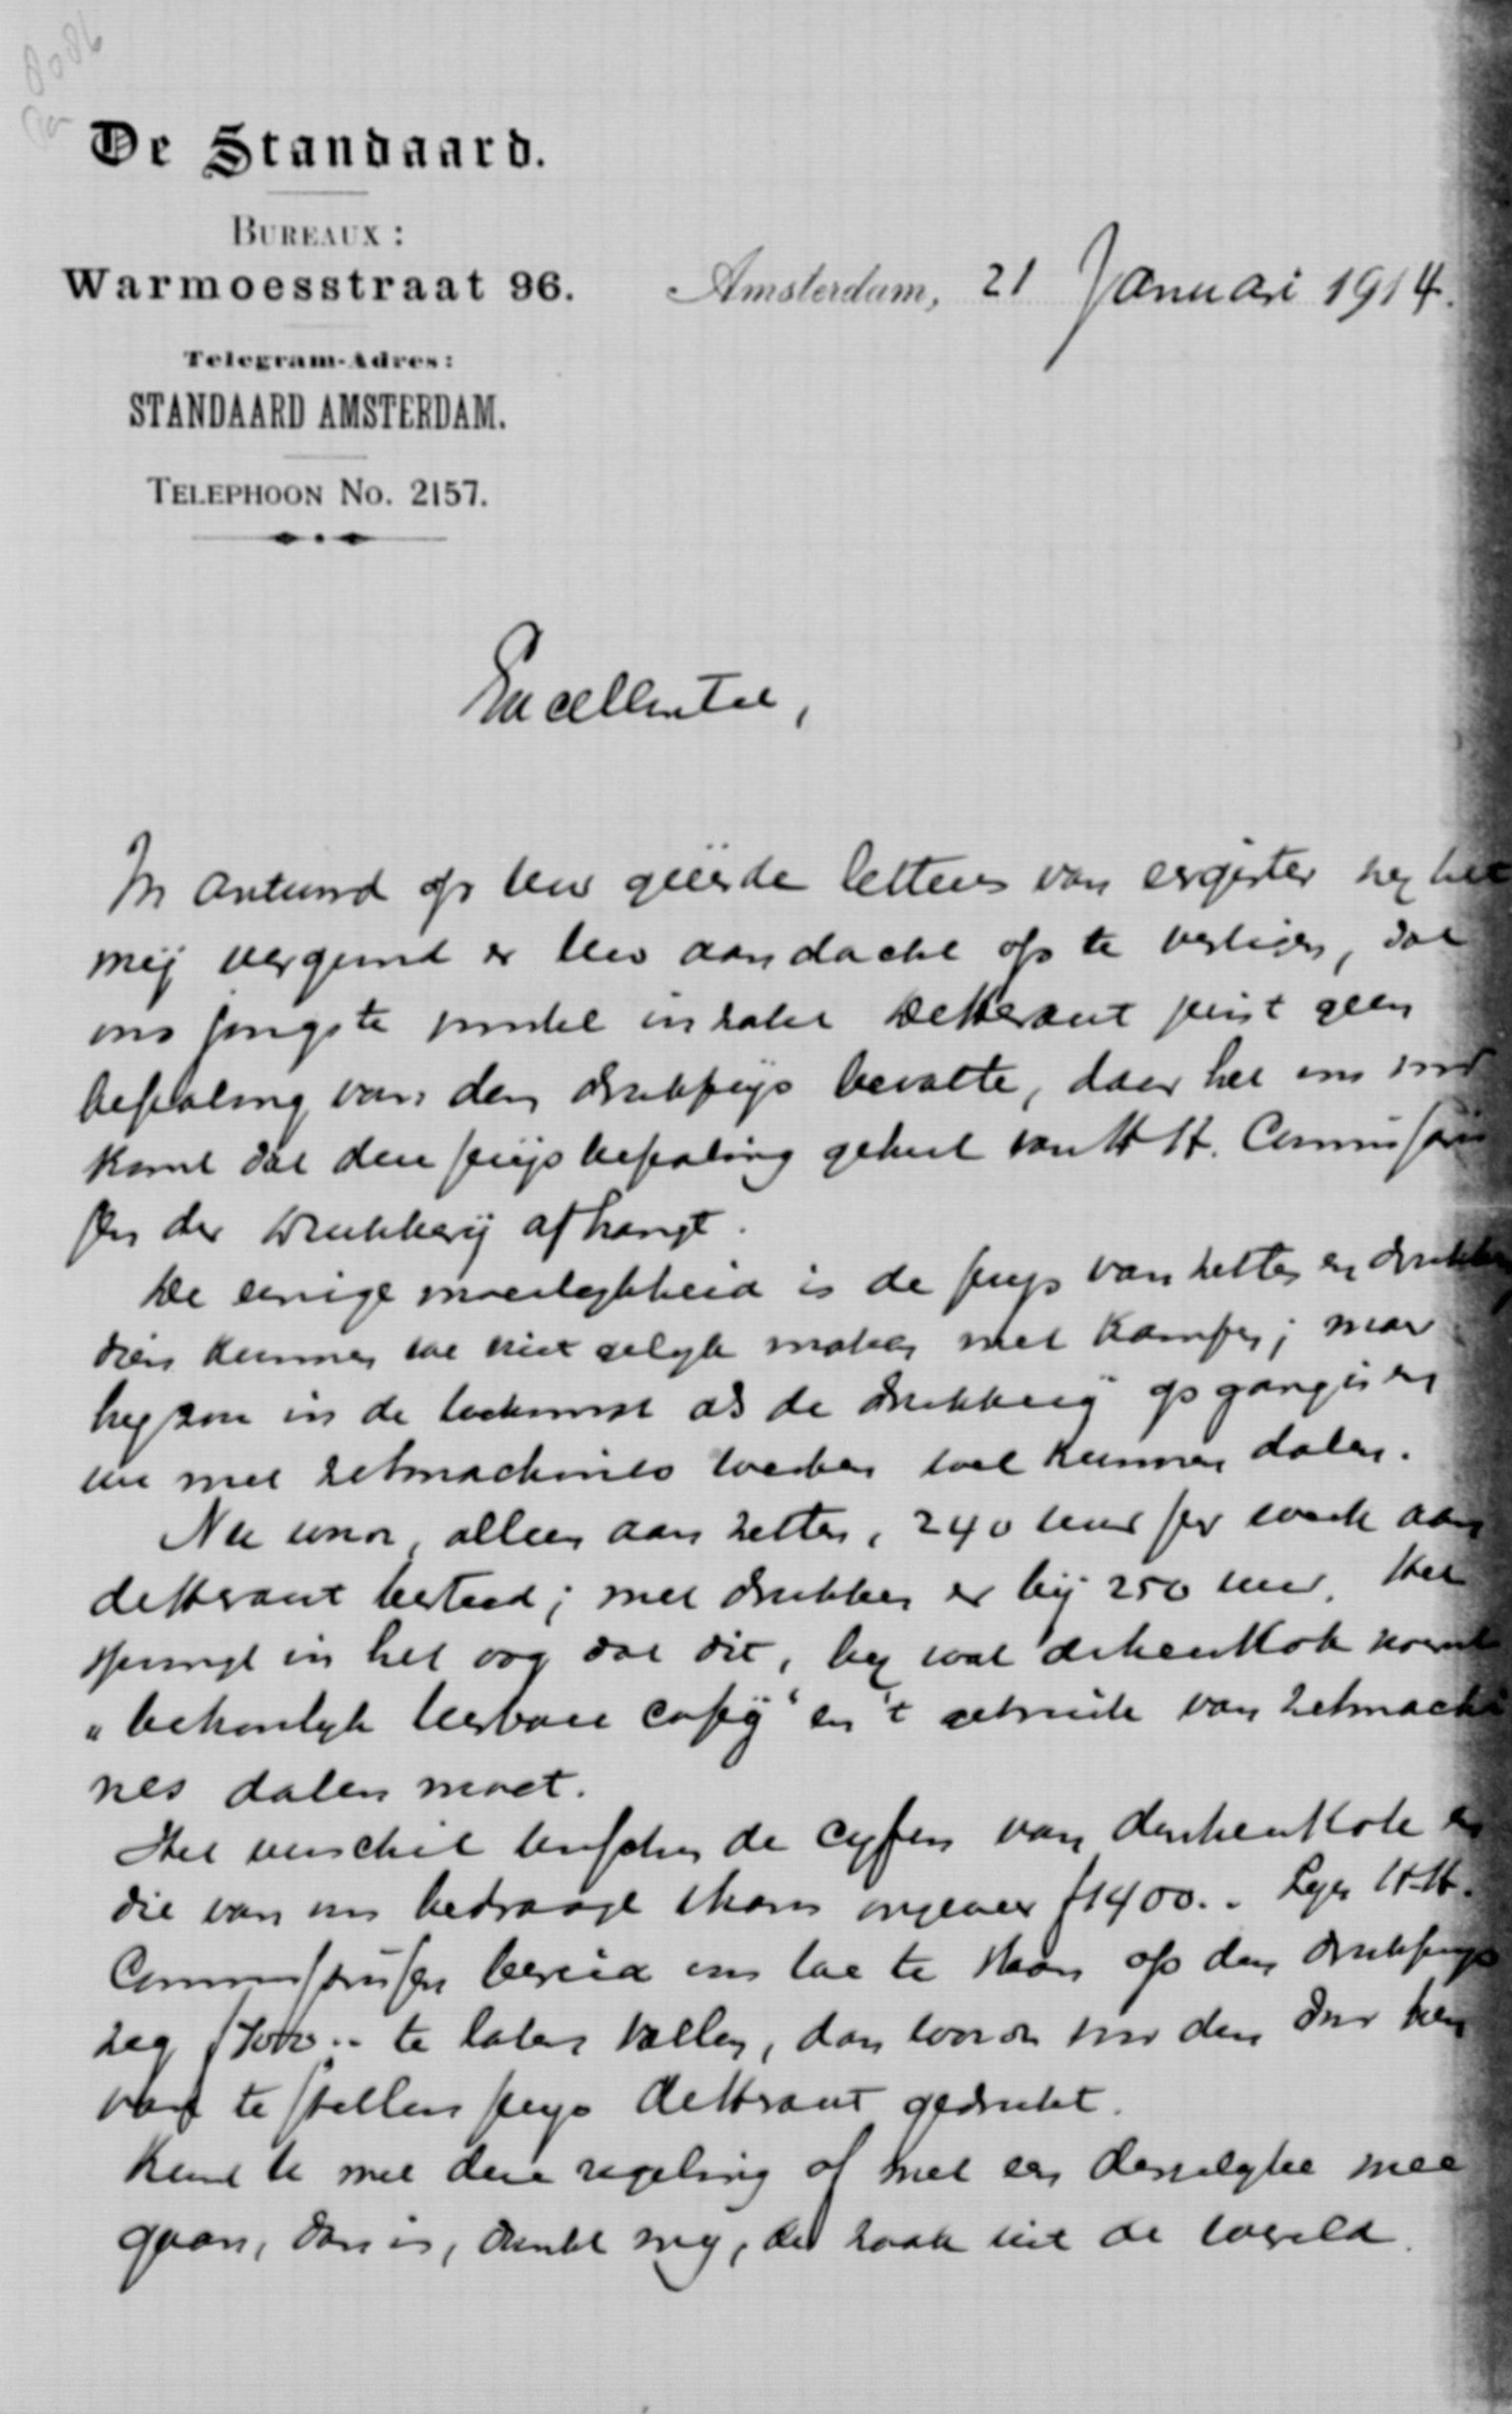 8086
De Standaard.
BUREAUX:
Warmoesstraat 96.
Amsterdam, 21 Januari 1914.
Telegram-Adres:
STANDAARD AMSTERDAM.
TELEPHOON No. 2157.
Excellentie,
In antwoord op Uw geëerde letteren van eergister zij het
mij vergund er Uw aandacht op te vestigen, dat
ons jongste voorstel inzake Dekkrant juist geen
bepaling van den drukprijs bevatte, daar het ons voor
komt dat deze prijsbepaling geheel van H.H. Commissaris
sen der Drukkerij afhangt.
De eenige moeilykheid is de prys van zetten en drukken
dien kunnen we niet gelyk maken met Kampen; maar
hy zou in de toekomst als de drukkery op gang is en
we met zetmachines werken wel kunnen dalen.
Nu wordt, alleen aan zetten, 240 uur per week aan
besteed; met drukken er bij 250 uur. Het
springt in het oog dat dit, by wat noemt
„behoorlyk leesbare copy" en 't gebruik van zetmachi
nes dalen moet.
Het verschil tusschen de cyfers van en
die van ons bedraagt thans ongeveer f 1400.-. H.H.
Commissarissen bereid ons toe te staan op den drukprys
zeg te laten vallen, dan wordt voor den door hen
vast te stellen prys gedrukt.
Kunt U met deze regeling of met een dergelyke mee
gaan, dan is, dunkt my, de zaak uit de wereld.